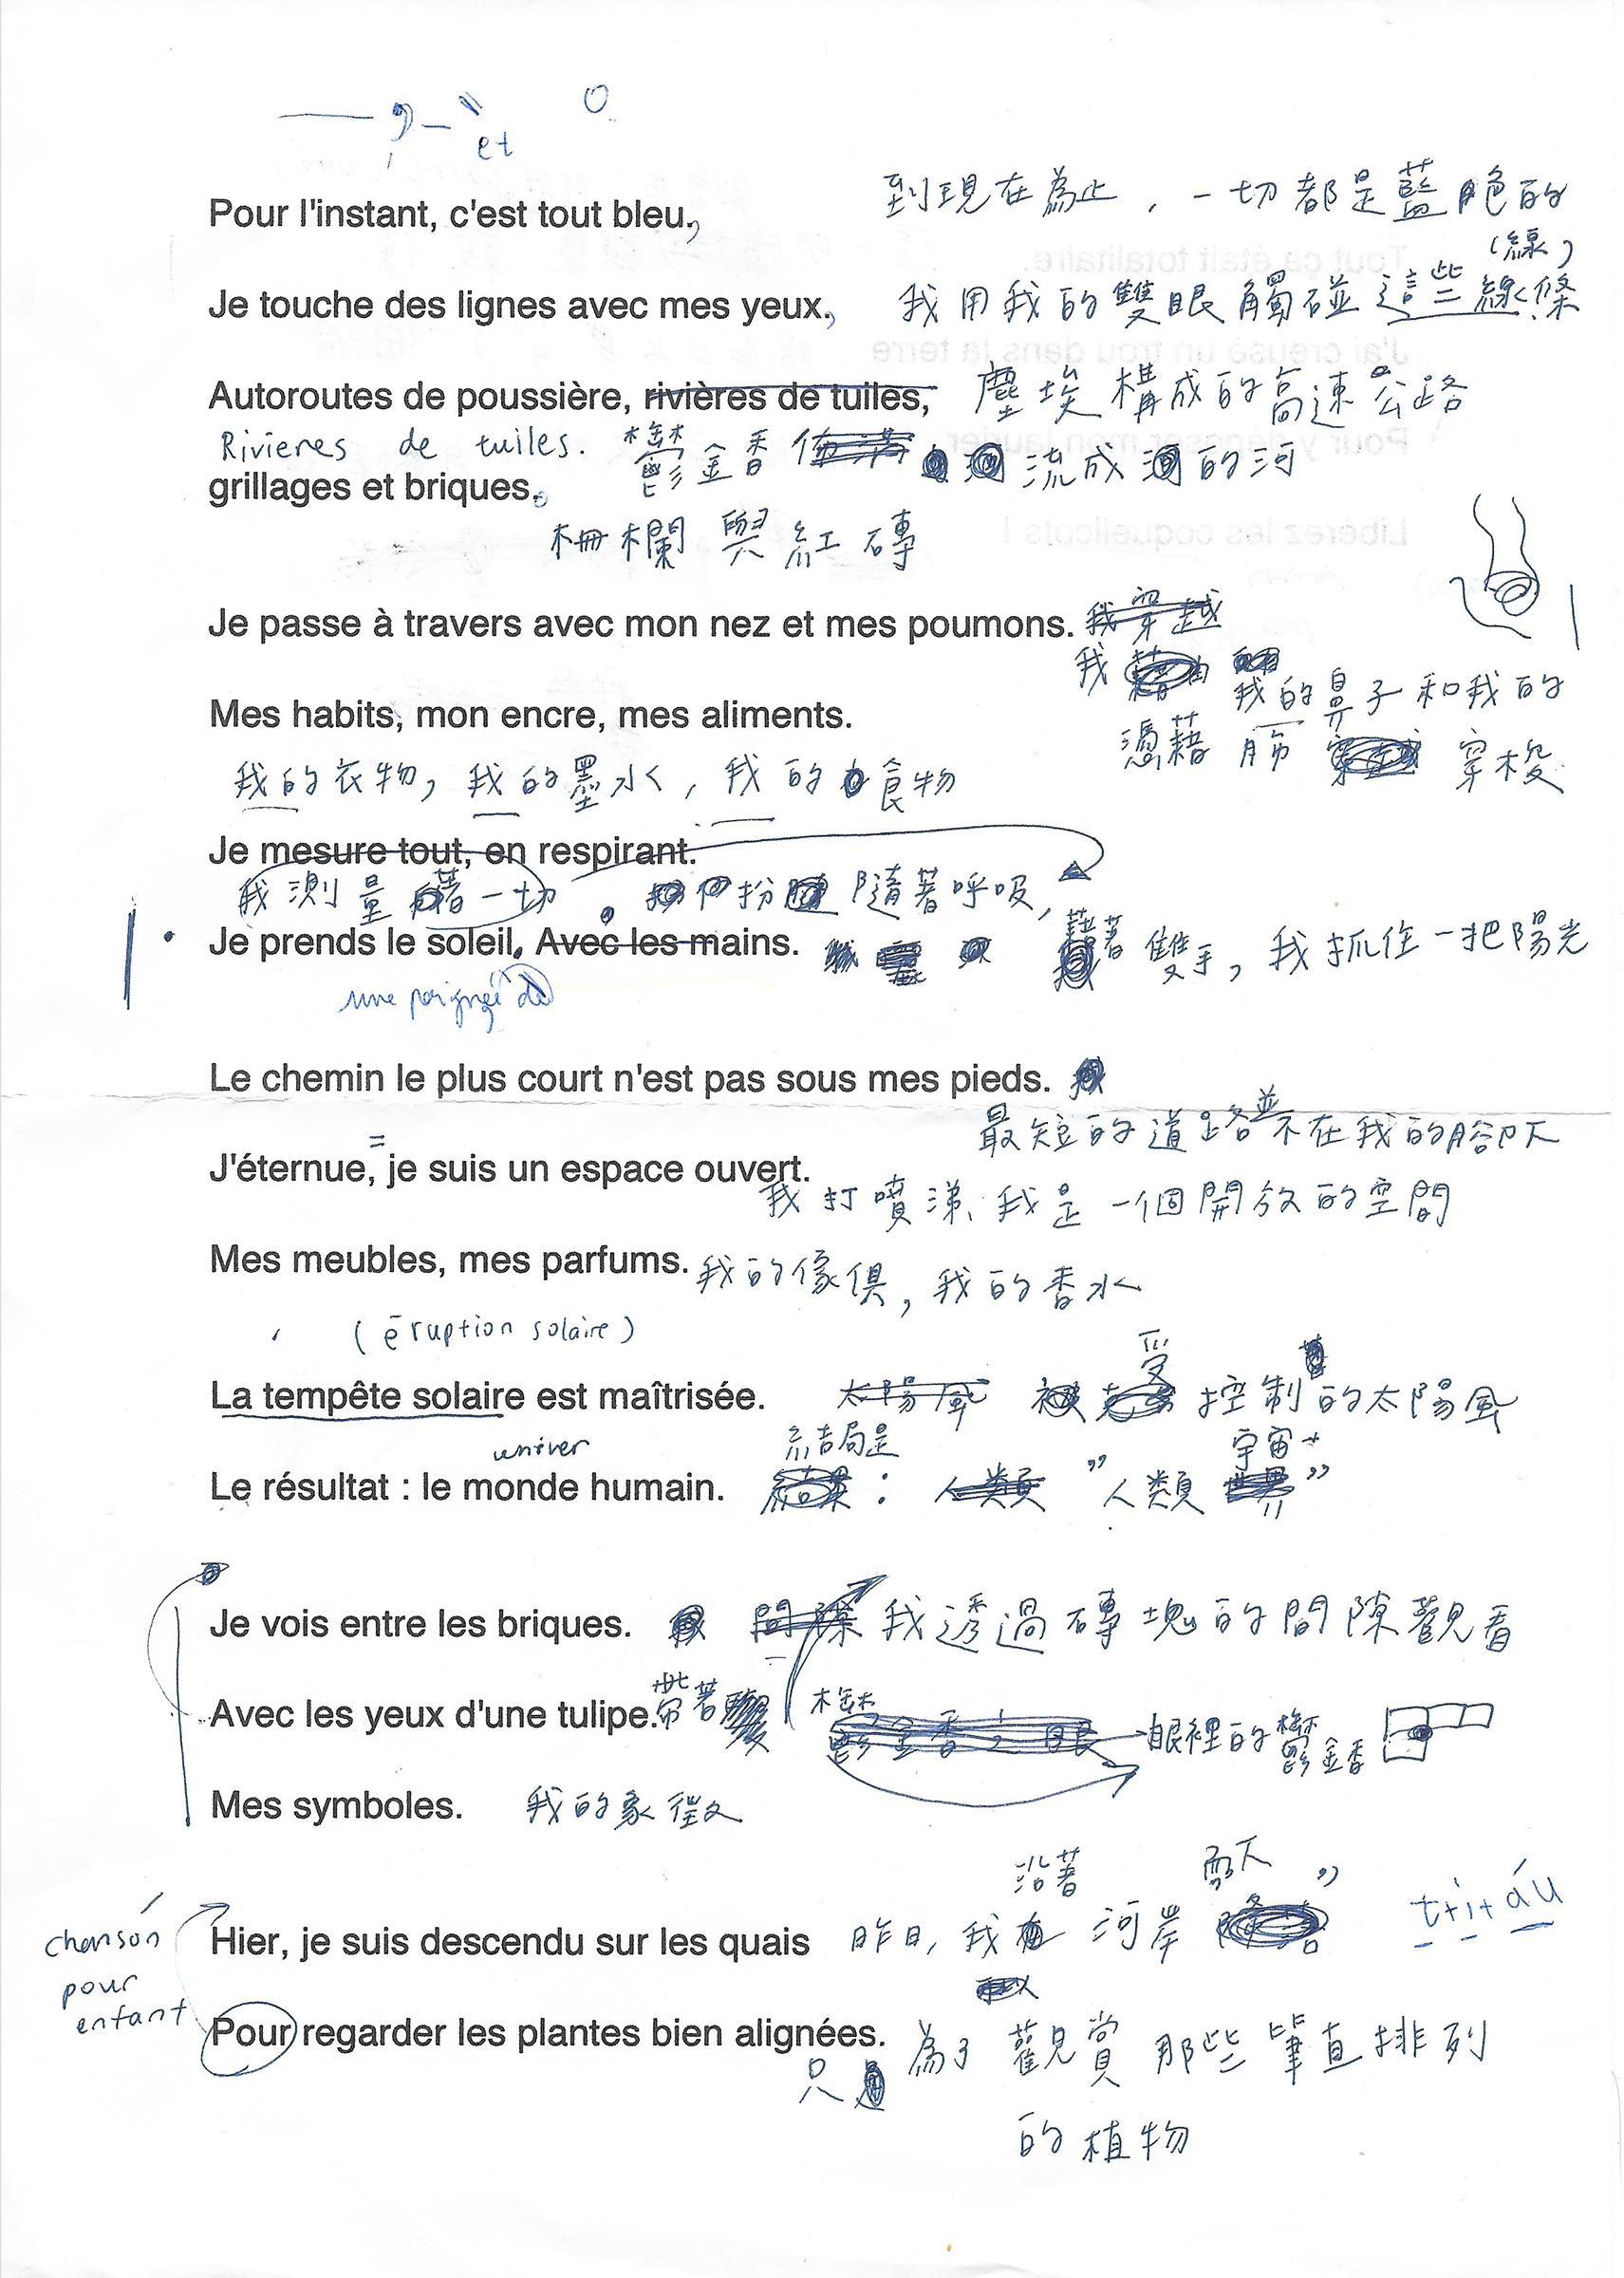 et
Pour l'instant, c'est tout bleu., 到現在為止，一切都是藍色的
(線)
Je touche des lignes avec mes yeux., 我用我的雙眼觸碰這些線條
Autoroutes de poussière, rivières de tuiles, 塵埃構成的高速公路
Rivieres de tuiles. 鬱金香 流成 的河
grillages et briques.
柵欄與紅磚
Je passe à travers avec mon nez et mes poumons. 我穿越
我 我的鼻子和我的
Mes habits, mon encre, mes aliments.
憑藉 肺 穿梭
我的衣物，我的墨水，我的食物
Je mesure tout, en respirant.
我測量著一切 隨著呼吸，
Je prends le soleil. Avec les mains. 藉著雙手，我抓住一把陽光
une poignée de
Le chemin le plus court n'est pas sous mes pieds.
最短的道路並不在我的腳下
J'éternue, je suis un espace ouvert.
我打噴涕、我是一個開放的空間
Mes meubles, mes parfums. 我的傢俱，我的香水
(éruption solaire)
La tempête solaire est maîtrisée. 太陽風 受控制的太陽風
univer 結局是 宇宙
Le résultat : le monde humain. 結果： 人類 "人類 世界"
Je vois entre les briques. 間隙 我透過磚塊的間隙觀看
Avec les yeux d'une tulipe. 帶著 鬱金香之眼 眼裡的鬱金香
Mes symboles. 我的象徵
沿著
Hier, je suis descendu sur les quais 昨日，我 河岸
chanson
pour
enfant
Pour regarder les plantes bien alignées. 為了觀賞那些筆直排列
只
的植物